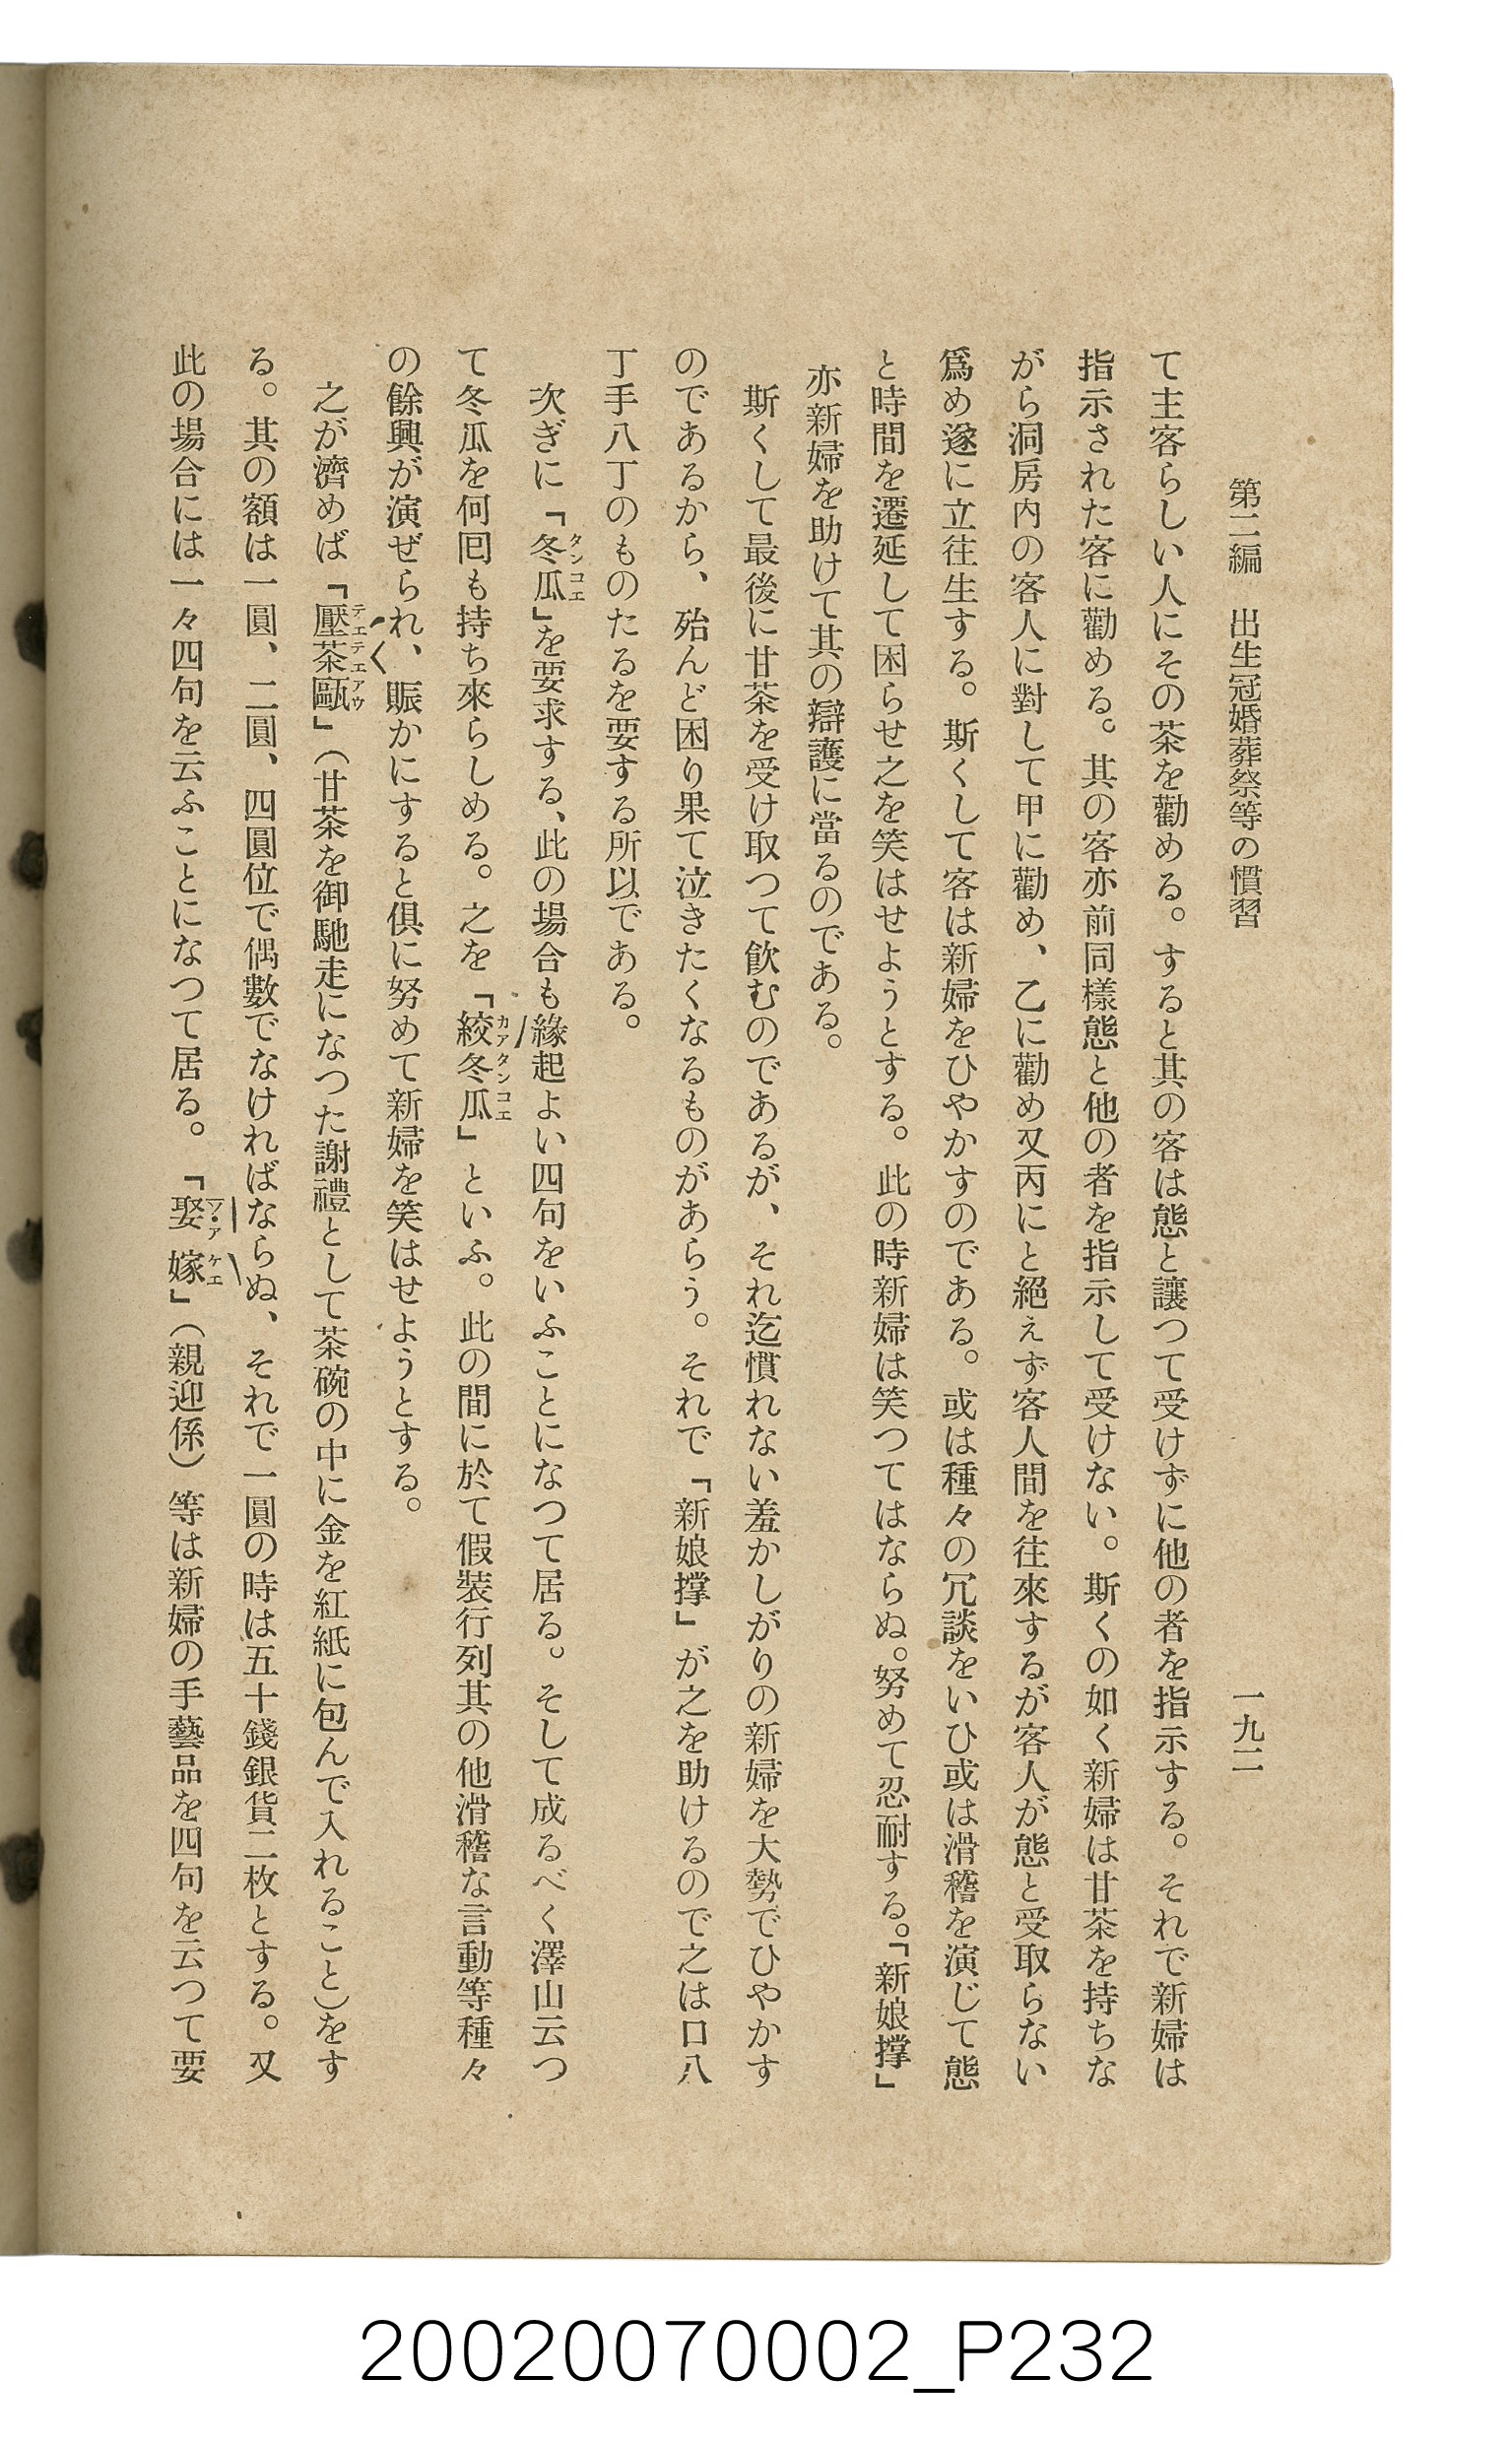 第二編　出生冠婚葬祭等の慣習
一九二
て主客らしい人にその茶を勸める。すると其の客は態と讓つて受けずに他の者を指示する。それで新婦は
指示された客に勸める。其の客亦前同樣態と他の者を指示して受けない。斯くの如く新婦は甘茶を持ちな
がら洞房内の客人に對して甲に勸め、乙に勸め又丙にと絕えず客人間を往來するが客人が態と受取らない
爲め遂に立往生する。斯くして客は新婦をひやかすのである。或は種々の冗談をいひ或は滑稽を演じて態
と時間を遷延して困らせ之を笑はせようとする。此の時新婦は笑つてはならぬ。努めて忍耐する。「新娘撑」
亦新婦を助けて其の辯護に當るのである。
斯くして最後に甘茶を受け取つて飮むのであるが、それ迄慣れない羞かしがりの新婦を大勢でひやかす
のであるから、殆んど困り果て泣きたくなるものがあらう。それで「新娘撑」が之を助けるので之は口八
丁手八丁のものたるを要する所以である。
次ぎに「冬瓜」を要求する、此の場合も緣起よい四句をいふことになつて居る。そして成るべく澤山云つ
タンコエ
て冬瓜を何囘も持ち來らしめる。之を「絞冬瓜」といふ。此の間に於て假裝行列其の他滑稽な言動等種々
カアタンコエ
の餘興が演ぜられ、賑かにすると俱に努めて新婦を笑はせようとする。
之が濟めば「壓茶甌」（甘茶を御馳走になつた謝禮として茶碗の中に金を紅紙に包んで入れること）をす
テエテエアウ
る。其の額は一圓、二圓、四圓位で偶數でなければならぬ、それで一圓の時は五十錢銀貨二枚とする。又
此の場合には一々四句を云ふことになつて居る。「娶嫁」（親迎係）等は新婦の手藝品を四句を云つて要